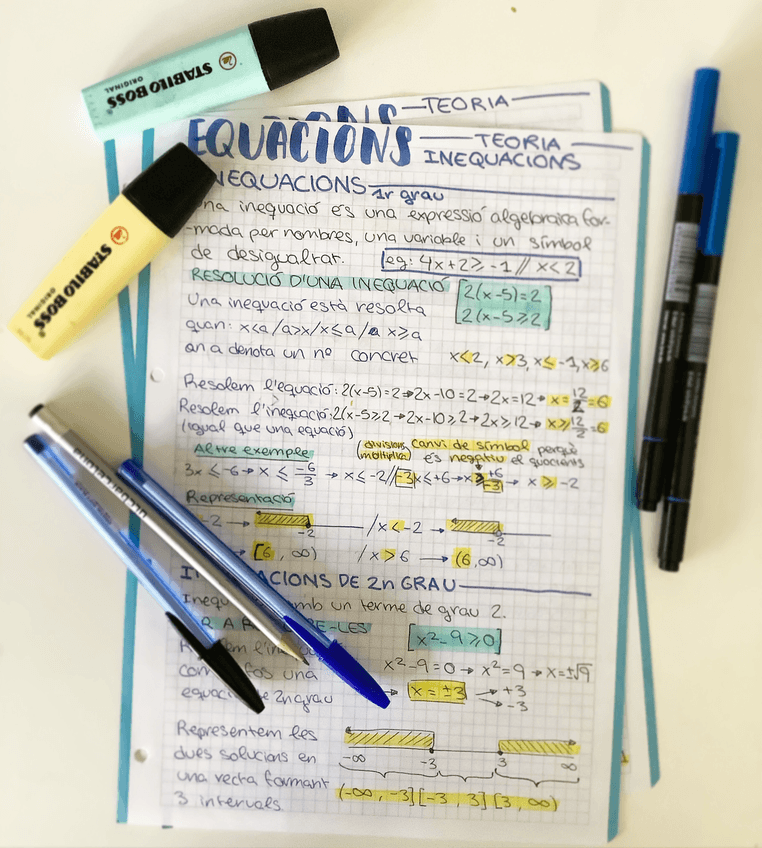 STABILO BOSS
ORIGINAL
TEORIA
EQUACIONS TEORIA
INEQUACIONS
INEQUACIONS 1r grau
Una inequació és una expressió algebraica for-
-mada per nombres, una variable i un símbol
de desigualtat. eg: 4x+2≥-1 // x<2
RESOLUCIÓ D'UNA INEQUACIÓ
2(x-5)=2
2(x-5≥2
Una inequació està resolta
quan: x<a/a>x/x≤a/a x≥a
on a denota un nº concret x<2, x>3, x≤-1, x≥6
Resolem l'equació: 2(x-5)=2→2x-10=2→2x=12→x=12/2=6
Resolem l'inequació: 2(x-5≥2→2x-10≥2→2x≥12→x≥12/2=6
(igual que una equació)
Altre exemple (divisions múltiples) Canvi de símbol perquè
és negatiu el quocients
3x≤-6→x≤-6/3→x≤-2//-3x≤+6→x≥+6/-3→x≥-2
Representació
-2 → -2 /x<-2 → -2
→ [6, ∞) /x>6 → (6,∞)
DE 2n GRAU
amb un terme de grau 2.
x²-9≥0
fos una x²-9=0→x²=9→x=±√9
equació de 2n grau → x=±3 → +3
→ -3
Representem les
dues solucions en -∞ -3 3 ∞
una recta formant
3 intervals. (-∞, -3][-3 3][3, ∞)
STABILO BOSS
ORIGINAL